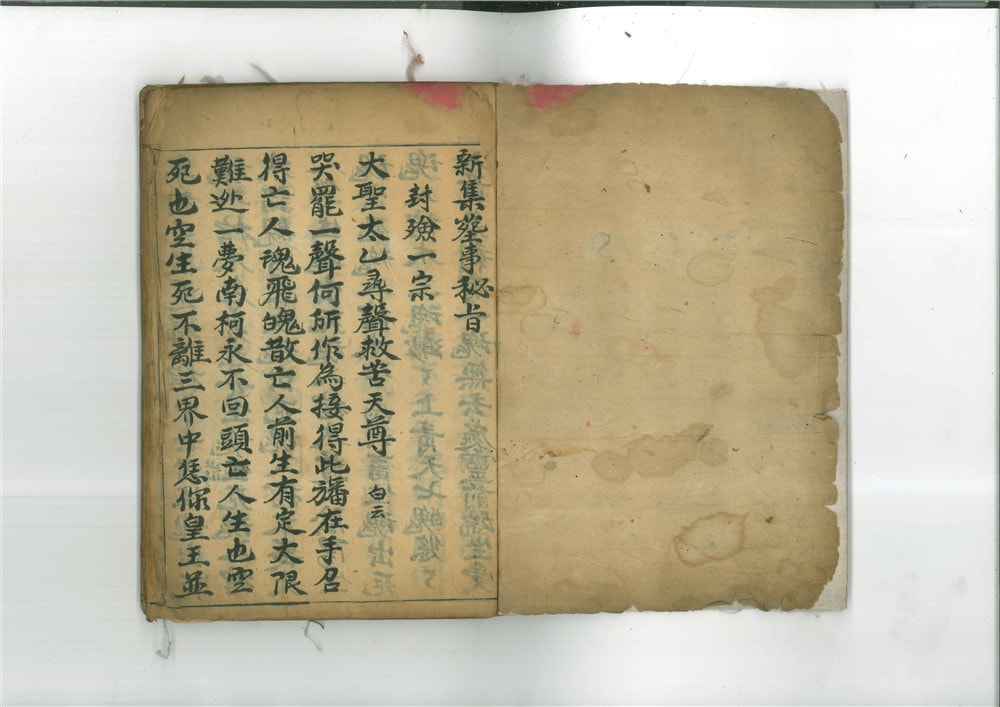 新集㘸事秘旨
封殮一宗
大聖太乙尋聲救苦天尊 白云
哭罷一聲何所作為接得此旛在手召
得亡人魂飛魄散亡人前生有定大限
難迯一夢南柯永不回頭亡人生也空
死也空生死不離三界中恁你皇王並